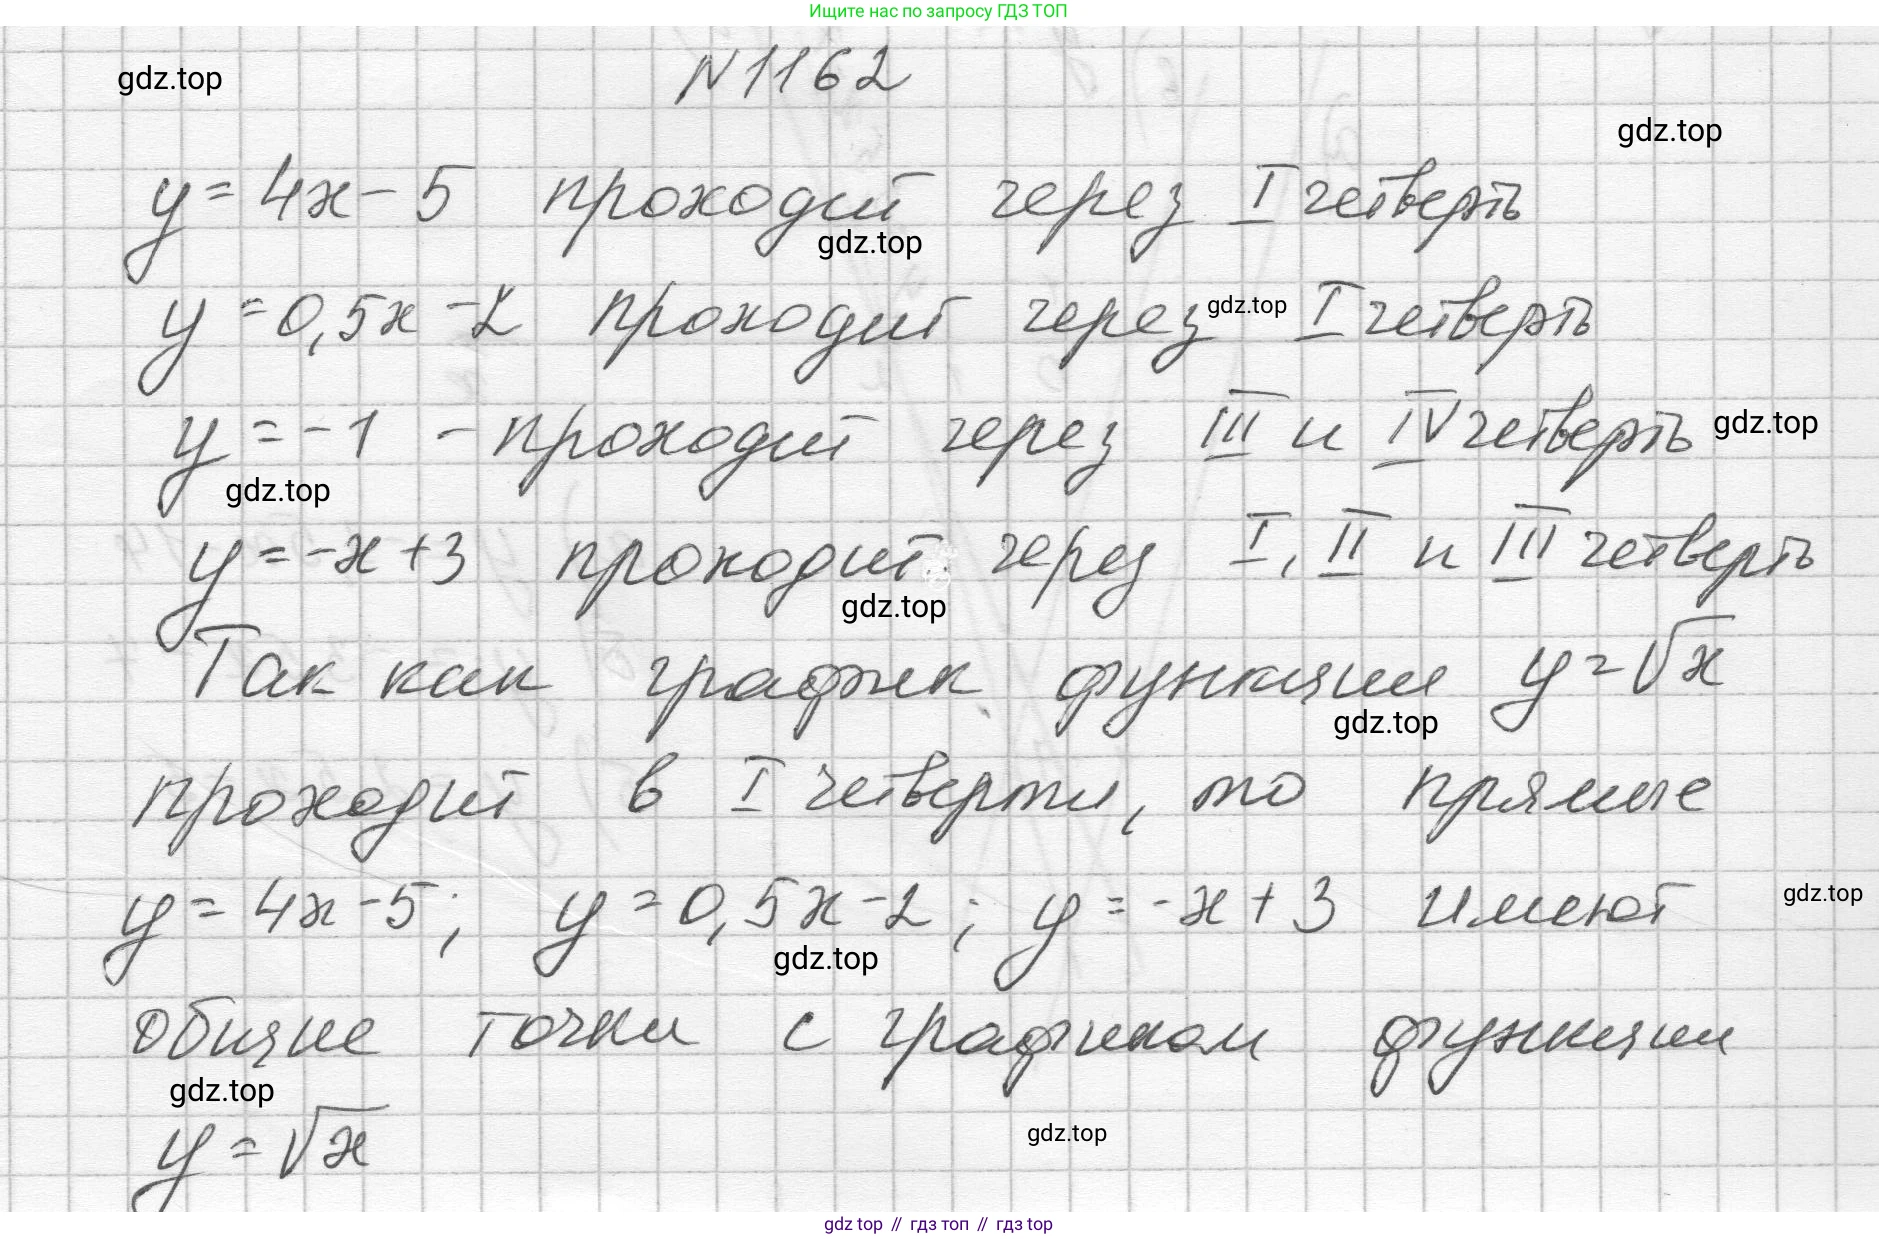 Ищите нас по запросу ГДЗ ТОП
N1162
gdz.top
gdz.top
y = 4x - 5 проходит через I четверть
gdz.top
y = 0,5x - 2 проходит через I четверть
gdz.top
y = -1 - проходит через III и IV четверть
gdz.top
gdz.top
y = -x + 3 проходит через I, II и III четверть
gdz.top
Так как график функции y = √x
gdz.top
проходит в I четверти, то прямые
y = 4x - 5; y = 0,5x - 2; y = -x + 3 имеют
gdz.top
gdz.top
общие точки с графиком функции
gdz.top
y = √x
gdz.top
gdz top // гдз топ // гдз top